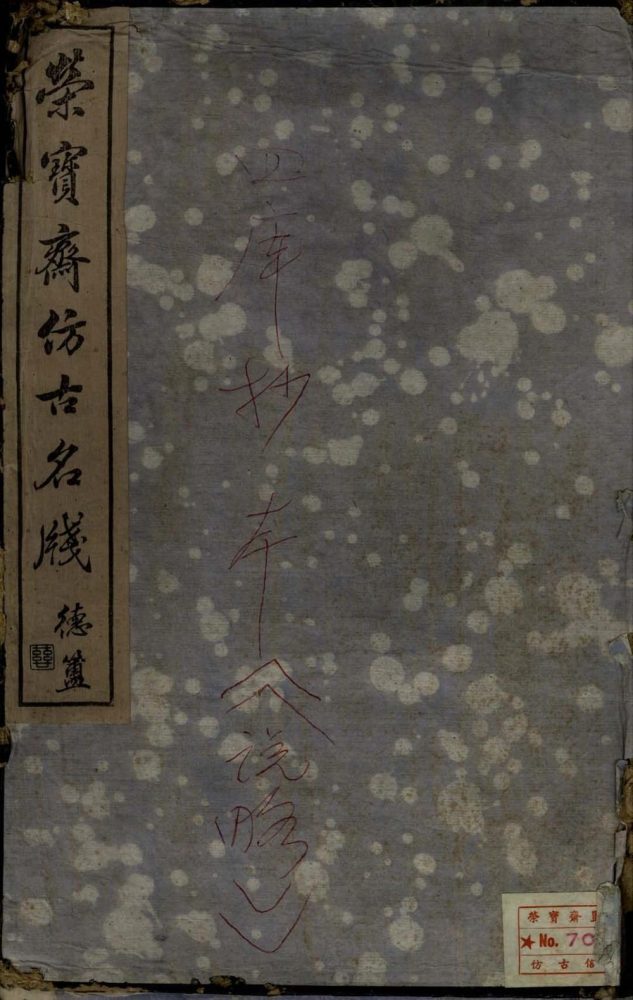 榮寶齋仿古名牋
德
四库抄本〈说略〉
榮寶齋
★ No. 70
仿古